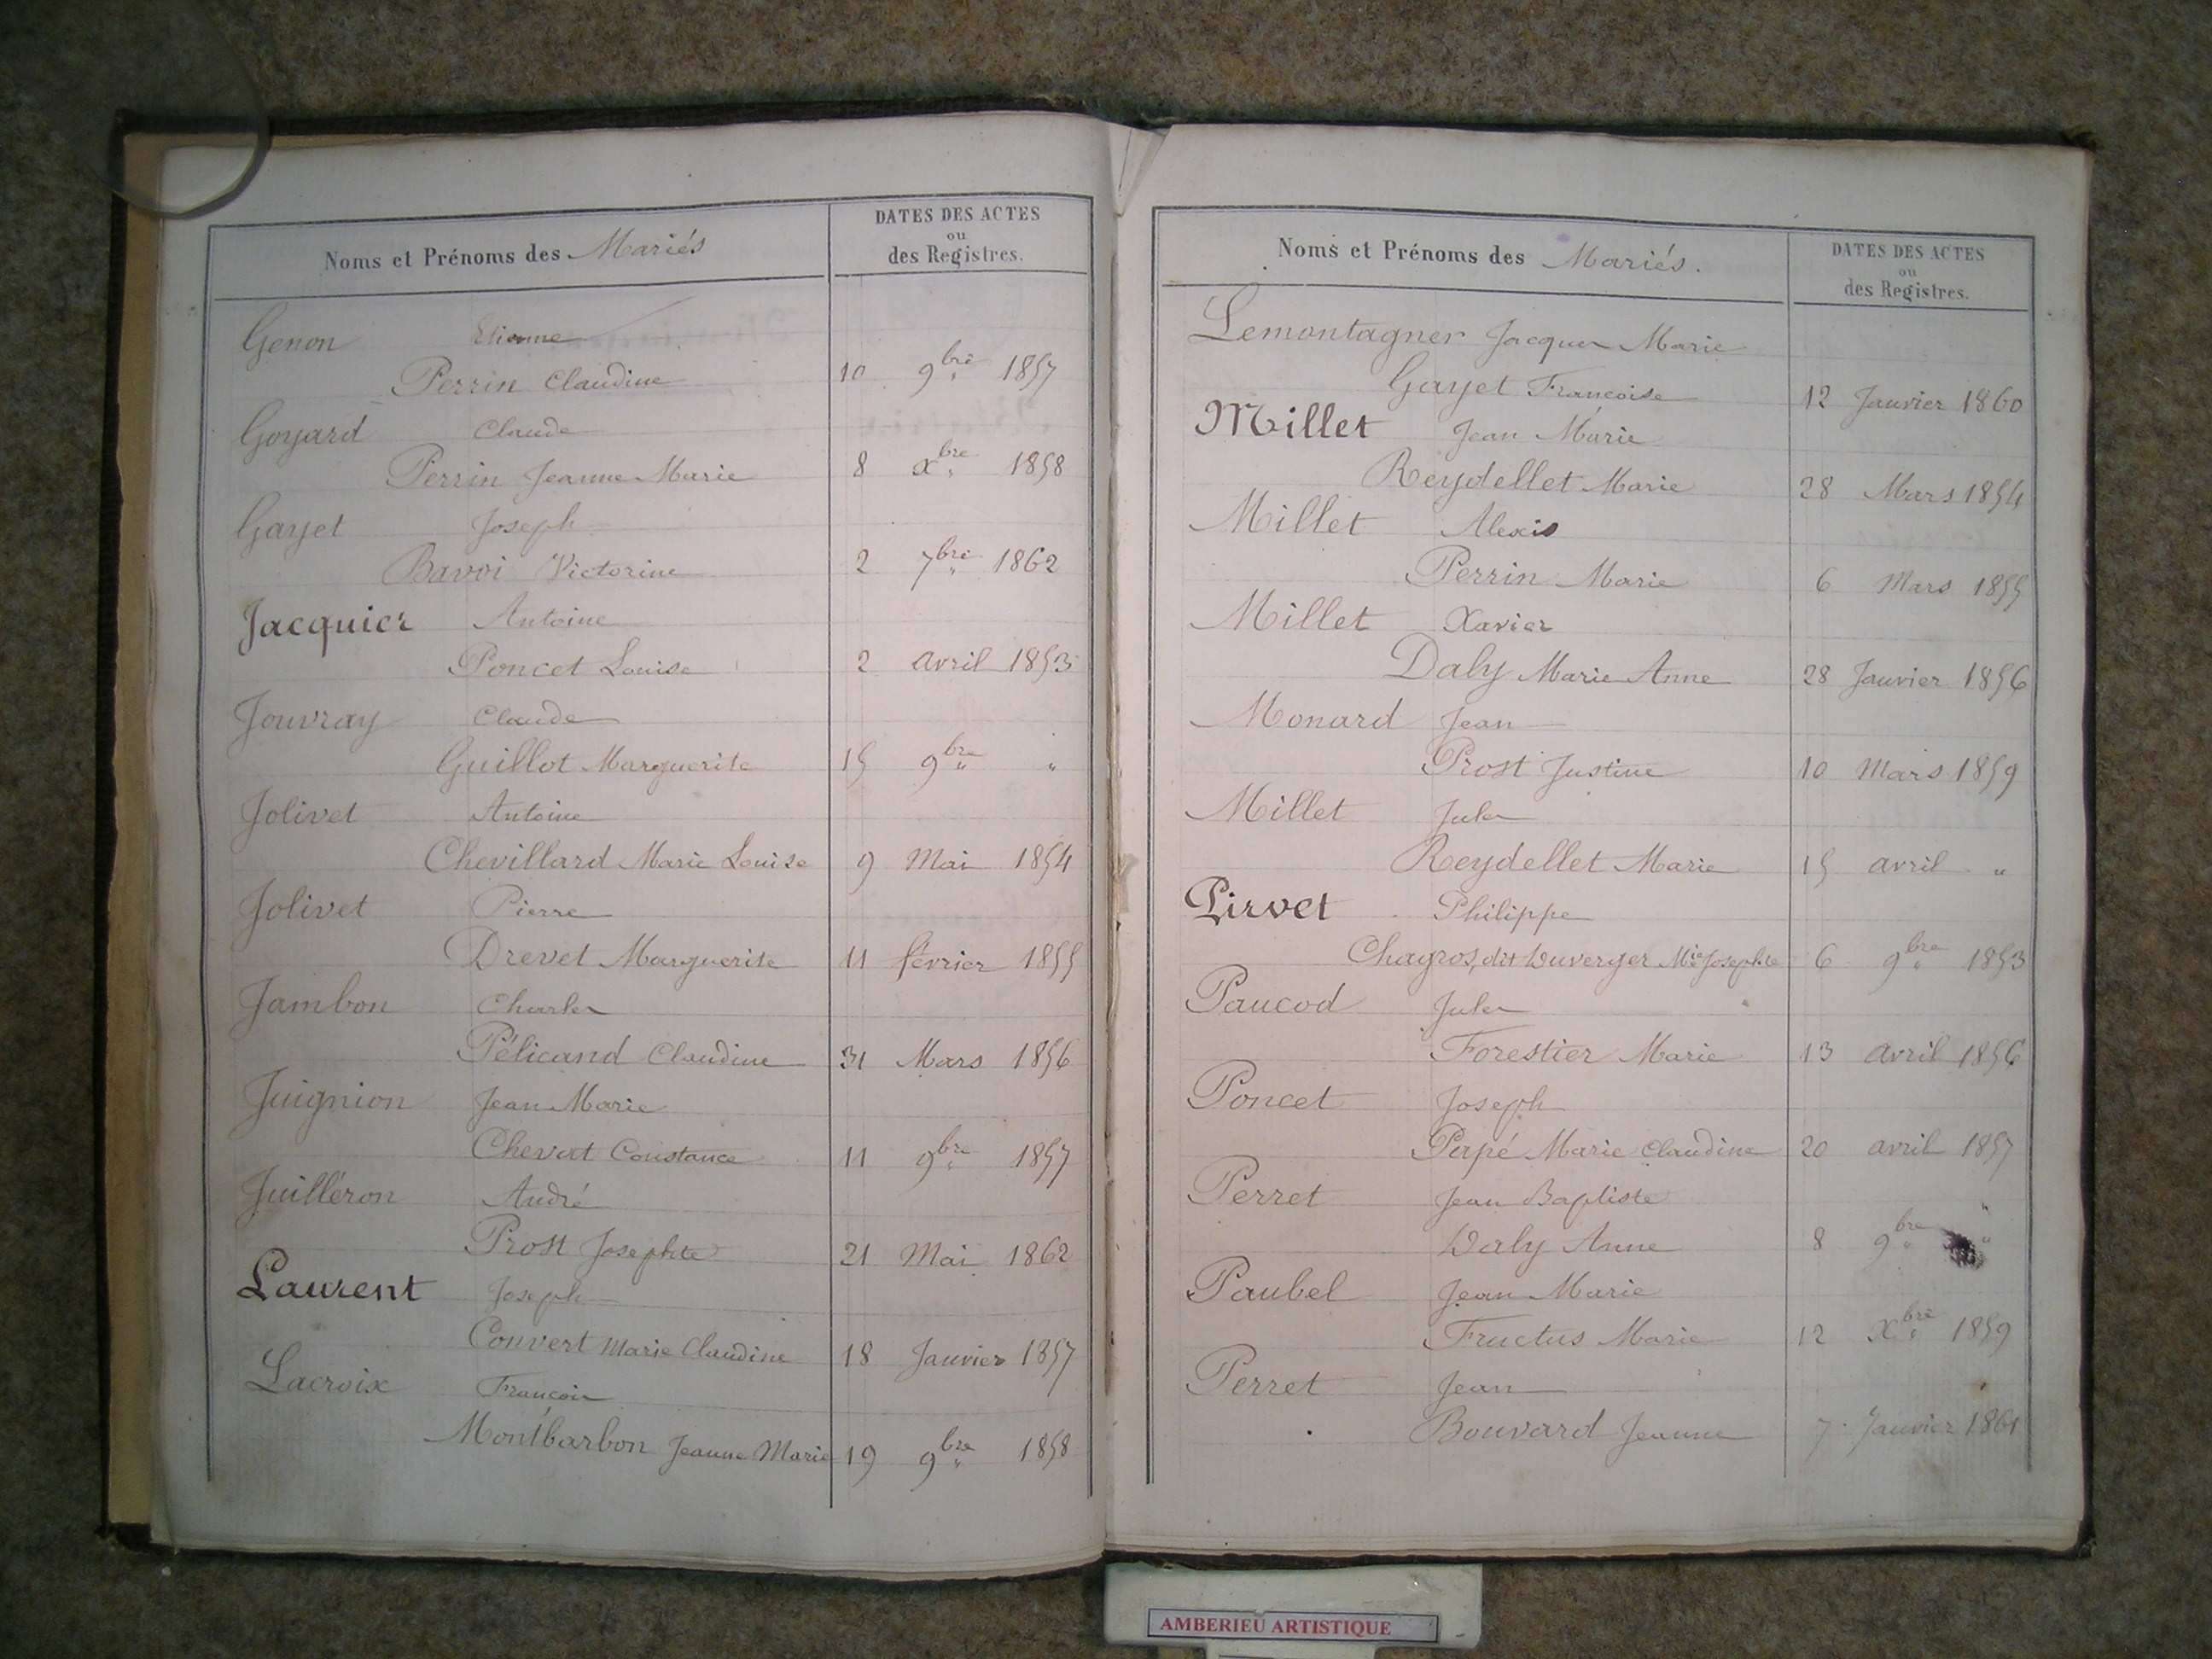 Noms et Prénoms des Mariés
DATES DES ACTES
ou
des Registres.
Genon Etienne
Perrin Claudine 10 9bre 1857
Goyard Claude
Perrin Jeanne Marie 8 Xbre 1858
Gayet Joseph
Bavoi Victorine 2 7bre 1862
Jacquier Antoine
Poncet Louise 2 avril 1853
Jouvray Claude
Guillot Marguerite 15 9bre "
Jolivet Antoine
Chevillard Marie Louise 9 Mai 1854
Jolivet Pierre
Drevet Marguerite 11 février 1855
Jambon Charles
Pélicand Claudine 31 Mars 1856
Juignion Jean Marie
Chevat Constance 11 9bre 1857
Juilléron André
Prost Josephte 21 Mai 1862
Laurent Joseph
Convert Marie Claudine 18 Janvier 1857
Lacroix François
Montbarbon Jeanne Marie 19 9bre 1858
Noms et Prénoms des Mariés.
DATES DES ACTES
ou
des Registres.
Lemontagner Jacques Marie
Gayet Francoise 12 Janvier 1860
Millet Jean Marie
Reydellet Marie 28 Mars 1854
Millet Alexis
Perrin Marie 6 Mars 1855
Millet Xavier
Daly Marie Anne 28 Janvier 1856
Monard Jean
Prost Justine 10 Mars 1859
Millet Jules
Reydellet Marie 15 avril "
Pirvet Philippe
Chagros, dit Duverger Mie Josephte 6 9bre 1853
Paucod Jules
Forestier Marie 13 avril 1856
Poncet Joseph
Papé Marie Claudine 20 avril 1857
Perret Jean Baptiste
Daly Anne 8 9bre "
Paubel Jean Marie
Fructus Marie 12 Xbre 1859
Perret Jean
Bouvard Jeanne 7 Janvier 1861
AMBERIEU ARTISTIQUE